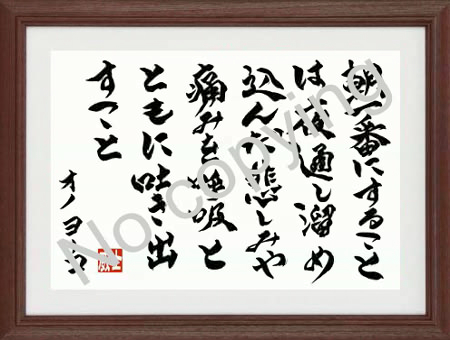 朝一番にすること
は夜通し溜め
込んだ悲しみや
痛みを呼吸と
ともに吐き出
すこと
オノ・ヨーコ
No copying